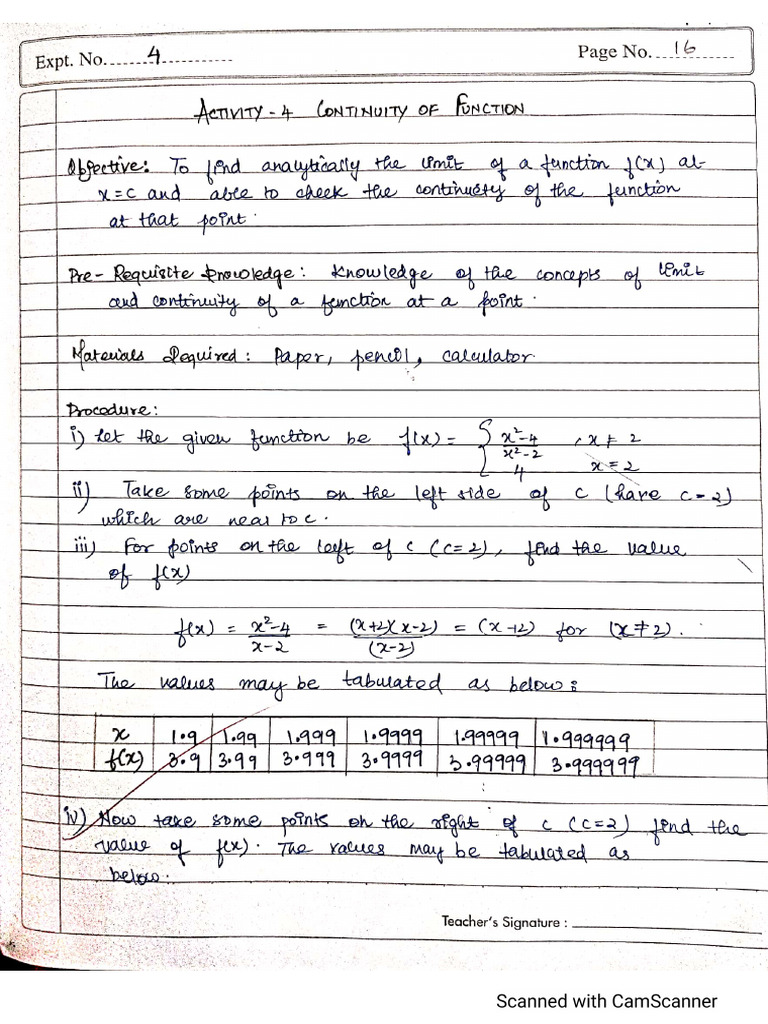 Expt. No. 4
Page No. 16
ACTIVITY - 4 CONTINUITY OF FUNCTION
Objective: To find analytically the limit of a function f(x) at
x=c and able to check the continuity of the function
at that point.
Pre-Requisite knowledge: Knowledge of the concepts of limit
and continuity of a function at a point.
Materials Required: Paper, pencil, calculator.
Procedure:
i) Let the given function be f(x) = { x²-4 / x²-2 , x ≠ 2
4 x=2
ii) Take some points on the left side of c (have c=2)
which are near to c.
iii) For points on the left of c (c=2), find the value
of f(x)
f(x) = x²-4 / x-2 = (x+2)(x-2) / (x-2) = (x+2) for (x≠2).
The values may be tabulated as below:
x 1.9 1.99 1.999 1.9999 1.99999 1.999999
f(x) 3.9 3.99 3.999 3.9999 3.99999 3.999999
iv) Now take some points on the right of c (c=2) find the
value of f(x). The values may be tabulated as
below.
Teacher's Signature :
Scanned with CamScanner